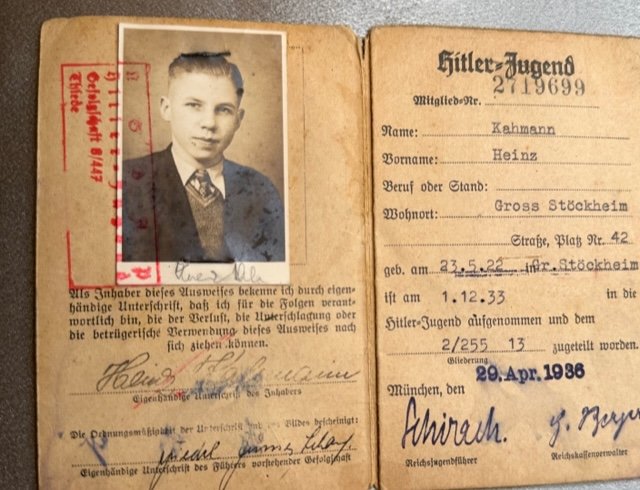 Gefolgschaft 8/447
Thiede
Als Inhaber dieses Ausweises bekenne ich durch eigen-
händige Unterschrift, daß ich für die Folgen verant-
wortlich bin, die der Verlust, die Unterschlagung oder
die betrügerische Verwendung dieses Ausweises nach
sich ziehen können.
Heinz Kahmann
Eigenhändige Unterschrift des Inhabers
Die Ordnungsmäßigkeit der Unterschrift und des Bildes bescheinigt:
Eigenhändige Unterschrift des Führers vorstehender Gefolgschaft
Hitler-Jugend
Mitglied-Nr. 2719699
Name: Kahmann
Vorname: Heinz
Beruf oder Stand:
Wohnort: Gross Stöckheim
Straße, Platz Nr. 42
geb. am 23.5.22 in Gr.Stöckheim
ist am 1.12.33 in die
Hitler-Jugend aufgenommen und dem
2/255 13 zugeteilt worden.
Gliederung
München, den 29. Apr. 1936
Schirach.
Reichsjugendführer Reichskassenverwalter